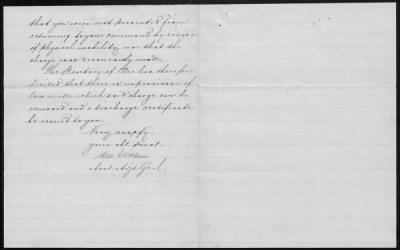 that you were not prevented from
returning to your command by reason
of physical inability, nor that the
charge was erroneously made.
The Secretary of War has therefore
decided that there is no provision of
law under which said charge can be
removed and a discharge certificate
be issued to you.
Very respfy.
your obt. servt.
Asst. Adjt. Genl.